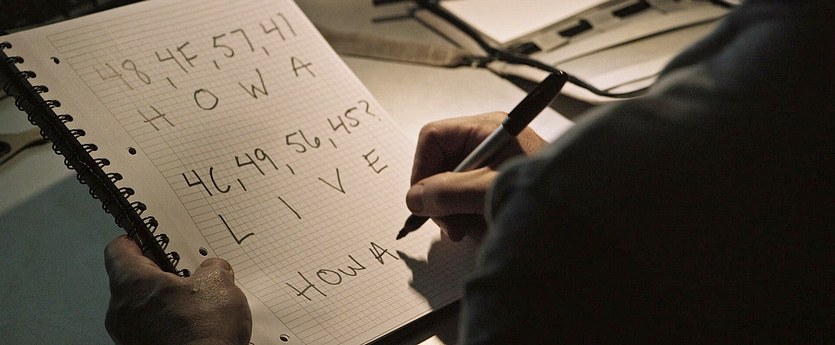 48, 4F, 57, 41
H O W A
4C, 49, 56, 45?
L I V E
HOWA